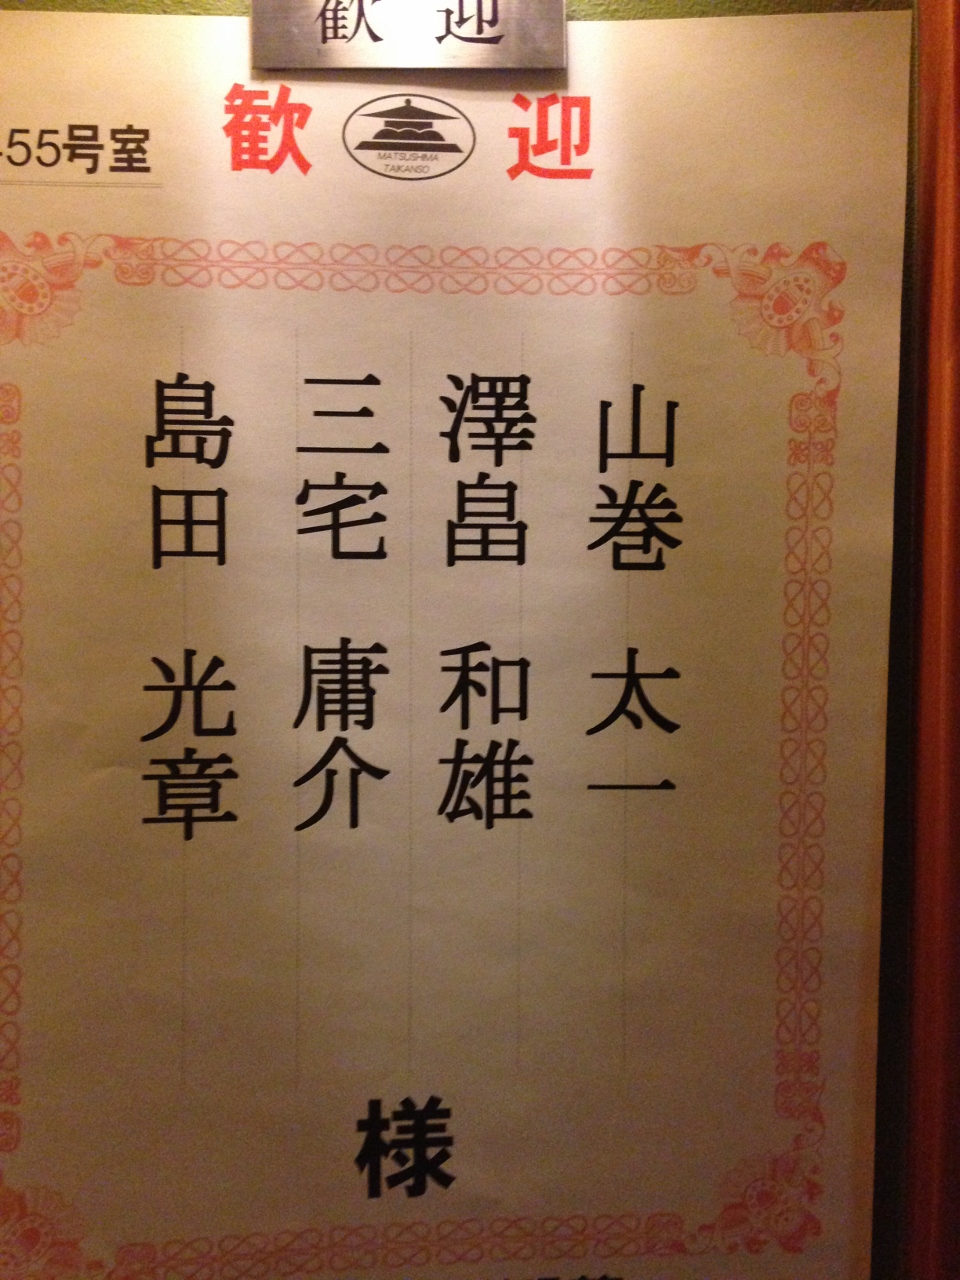 歓 迎
55号室
歓 迎
MATSUSHIMA
TAIKANSO
山巻 太一
澤畠 和雄
三宅 庸介
島田 光章
様